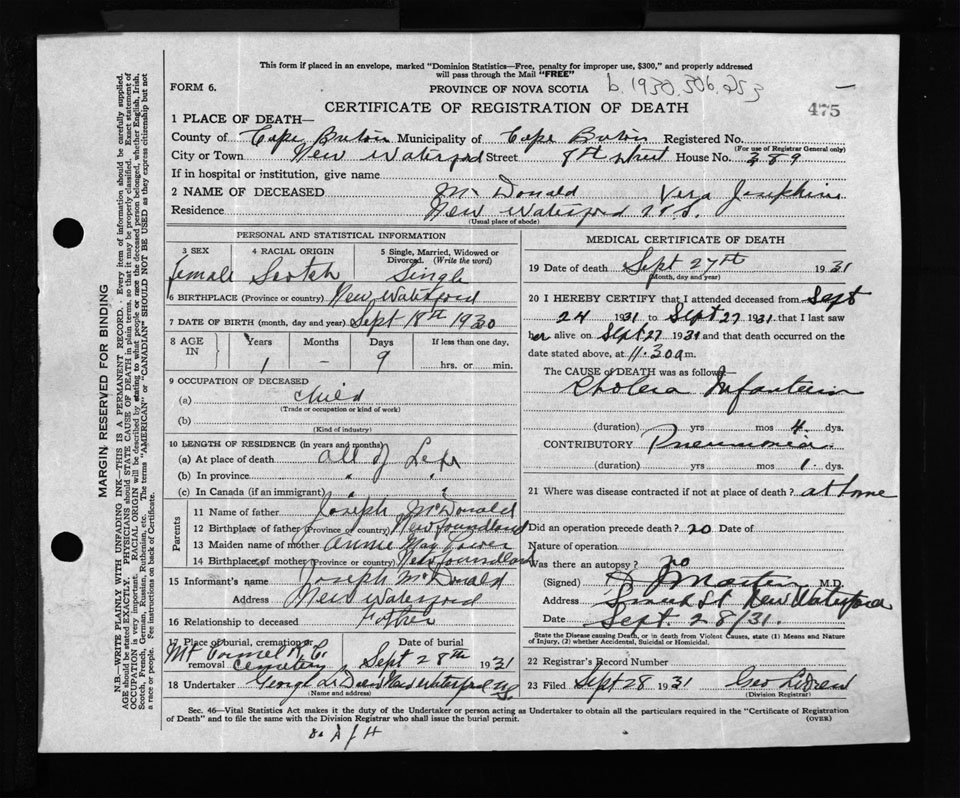 This form if placed in an envelope, marked "Dominion Statistics—Free, penalty for improper use, $300," and properly addressed
will pass through the Mail "FREE"
FORM 6.
PROVINCE OF NOVA SCOTIA b. 1930.306.253
CERTIFICATE OF REGISTRATION OF DEATH
475
1 PLACE OF DEATH—
County of Cape Breton Municipality of Cape Breton Registered No.
(For use of Registrar General only)
City or Town New Waterford Street 8th street House No. 389
If in hospital or institution, give name
2 NAME OF DECEASED McDonald Vera Josephine
Residence New Waterford N.S.
(Usual place of abode)
PERSONAL AND STATISTICAL INFORMATION
3 SEX 4 RACIAL ORIGIN 5 Single, Married, Widowed or Divorced. (Write the word)
female Scotch Single
6 BIRTHPLACE (Province or country) New Waterford
7 DATE OF BIRTH (month, day and year) Sept 18th 1930
8 AGE IN Years Months Days If less than one day.
1 – 9 hrs. or min.
9 OCCUPATION OF DECEASED
(a) child
(Trade or occupation or kind of work)
(b)
(Kind of industry)
10 LENGTH OF RESIDENCE (in years and months)
(a) At place of death all of Life
(b) In province " "
(c) In Canada (if an immigrant) " "
Parents
11 Name of father Joseph McDonald
12 Birthplace of father (Province or country) Newfoundland
13 Maiden name of mother Annie May Power
14 Birthplace of mother (Province or country) Newfoundland
15 Informant's name Joseph McDonald
Address New Waterford
16 Relationship to deceased Father
17 Place of burial, cremation or removal Date of burial
Mt Carmel R.C. Cemetery Sept 28th 1931
18 Undertaker George New Waterford
(Name and address)
MEDICAL CERTIFICATE OF DEATH
19 Date of death Sept 27th 1931
(Month, day and year)
20 I HEREBY CERTIFY that I attended deceased from Sept
24 1931 to Sept 27 1931 that I last saw
her alive on Sept 27 1931 and that death occurred on the
date stated above, at 11.30 a m.
The CAUSE of DEATH was as follows—
Cholera Infantum
(duration) yrs mos 4 dys.
CONTRIBUTORY Pneumonia
(duration) yrs mos 1 dys.
21 Where was disease contracted if not at place of death? at home
Did an operation precede death? no Date of
Nature of operation
Was there an autopsy? no
(Signed) M.D.
Address New Waterford
Date Sept 28/31.
State the Disease causing Death, or in death from Violent Causes, state (1) Means and Nature
of Injury, (2) whether Accidental, Suicidal or Homicidal.
22 Registrar's Record Number
23 Filed Sept 28 1931 Geo
(Division Registrar)
Sec. 46—Vital Statistics Act makes it the duty of the Undertaker or person acting as Undertaker to obtain all the particulars required in the "Certificate of Registration
of Death" and to file the same with the Division Registrar who shall issue the burial permit.
(OVER)
MARGIN RESERVED FOR BINDING
N.B.—WRITE PLAINLY WITH UNFADING INK—THIS IS A PERMANENT RECORD. Every item of information should be carefully supplied.
AGE should be stated EXACTLY. PHYSICIANS should STATE CAUSE OF DEATH in plain terms, so that it may be properly classified. Exact statement of
OCCUPATION is very important. RACIAL ORIGIN will be described by stating to what people or race the deceased person belonged, whether English, Irish,
Scotch, French, German, Russian, Ruthenian, etc. The terms "AMERICAN" or "CANADIAN" SHOULD NOT BE USED as they express citizenship but not
a race or people. See instructions on back of Certificate.